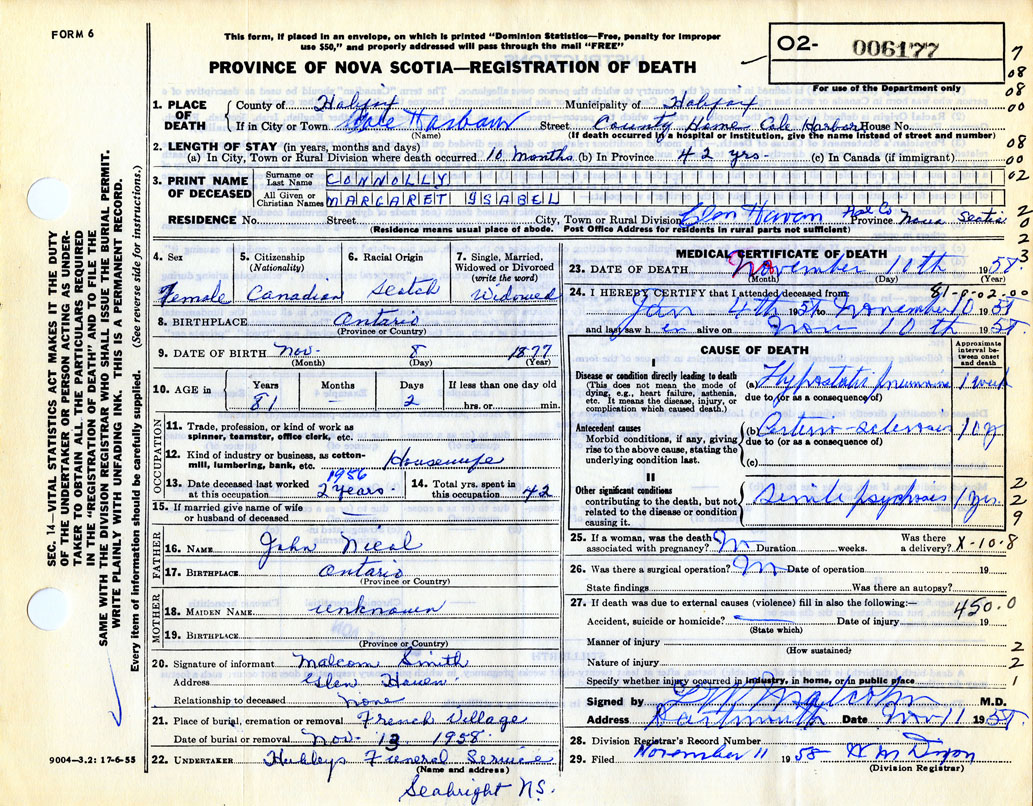 FORM 6
This form, if placed in an envelope, on which is printed "Dominion Statistics—Free, penalty for improper
use $50," and properly addressed will pass through the mail "FREE"
PROVINCE OF NOVA SCOTIA—REGISTRATION OF DEATH
02- 006177
For use of the Department only
7
08
08
00
08
00
02
2
0
2
3
1. PLACE OF DEATH County of Halifax Municipality of Halifax
If in City or Town Cole Harbour Street County Home Cole Harbor House No.
(Name) (If death occurred in a hospital or institution, give the name instead of street and number)
2. LENGTH OF STAY (in years, months and days)
(a) In City, Town or Rural Division where death occurred 10 Months (b) In Province 42 yrs. (c) In Canada (if immigrant)
3. PRINT NAME OF DECEASED Surname or Last Name CONNOLLY
All Given or Christian Names MARGARET ISABEL
RESIDENCE No. Street City, Town or Rural Division Glen Haven Hfx Co Province Nova Scotia
(Residence means usual place of abode. Post Office Address for residents in rural parts not sufficient)
4. Sex Female
5. Citizenship (Nationality) Canadian
6. Racial Origin Scotch
7. Single, Married, Widowed or Divorced (write the word) Widowed
8. BIRTHPLACE Ontario
(Province or Country)
9. DATE OF BIRTH Nov. 8 1877
(Month) (Day) (Year)
10. AGE in Years Months Days If less than one day old
81 – 2 hrs. or min.
OCCUPATION
11. Trade, profession or kind of work as spinner, teamster, office clerk, etc.
12. Kind of industry or business, as cotton-mill, lumbering, bank, etc. Housewife
13. Date deceased last worked at this occupation 1956 2 years.
14. Total yrs. spent in this occupation 42
15. If married give name of wife or husband of deceased —
FATHER
16. NAME John Nicol
17. BIRTHPLACE Ontario
(Province or Country)
MOTHER
18. MAIDEN NAME unknown
19. BIRTHPLACE
(Province or Country)
20. Signature of informant Malcom Smith
Address Glen Haven
Relationship to deceased None
21. Place of burial, cremation or removal French Village
Date of burial or removal Nov. 13 1958
22. UNDERTAKER Hubleys Funeral Service
(Name and address)
Seabright N.S.
MEDICAL CERTIFICATE OF DEATH
23. DATE OF DEATH November 10th 1958
(Month) (Day) (Year)
81-0-02-00
24. I HEREBY CERTIFY that I attended deceased from:
Jan 4th 1958 to November 10 1958
and last saw h er alive on Nov 10th 1958.
CAUSE OF DEATH
Approximate interval between onset and death
I
Disease or condition directly leading to death
(This does not mean the mode of dying, e.g., heart failure, asthenia, etc. It means the disease, injury, or complication which caused death.)
(a) Hypostatic pneumonia 1 week
due to (or as a consequence of)
Antecedent causes
Morbid conditions, if any, giving rise to the above cause, stating the underlying condition last.
(b) Arterio-sclerosis 10 y
due to (or as a consequence of)
(c)
II
Other significant conditions
contributing to the death, but not related to the disease or condition causing it.
Senile psychosis 1 yrs.
2
2
9
25. If a woman, was the death associated with pregnancy? No Duration weeks. Was there a delivery? X-10-8
26. Was there a surgical operation? No Date of operation 19
State findings Was there an autopsy?
27. If death was due to external causes (violence) fill in also the following:— 450.0
Accident, suicide or homicide? Date of injury 19
(State which)
Manner of injury
(How sustained)
2
Nature of injury
2
Specify whether injury occurred in industry, in home, or in public place
1
Signed by M.D.
Address Dartmouth Date Nov 11 1958
28. Division Registrar's Record Number
29. Filed November 11 1958 H M Dixon
(Division Registrar)
9004—3.2: 17-6-55
SEC. 14—VITAL STATISTICS ACT MAKES IT THE DUTY
OF THE UNDERTAKER OR PERSON ACTING AS UNDER-
TAKER TO OBTAIN ALL THE PARTICULARS REQUIRED
IN THE "REGISTRATION OF DEATH" AND TO FILE THE
SAME WITH THE DIVISION REGISTRAR WHO SHALL ISSUE THE BURIAL PERMIT.
WRITE PLAINLY WITH UNFADING INK. THIS IS A PERMANENT RECORD.
Every item of information should be carefully supplied. (See reverse side for instructions.)